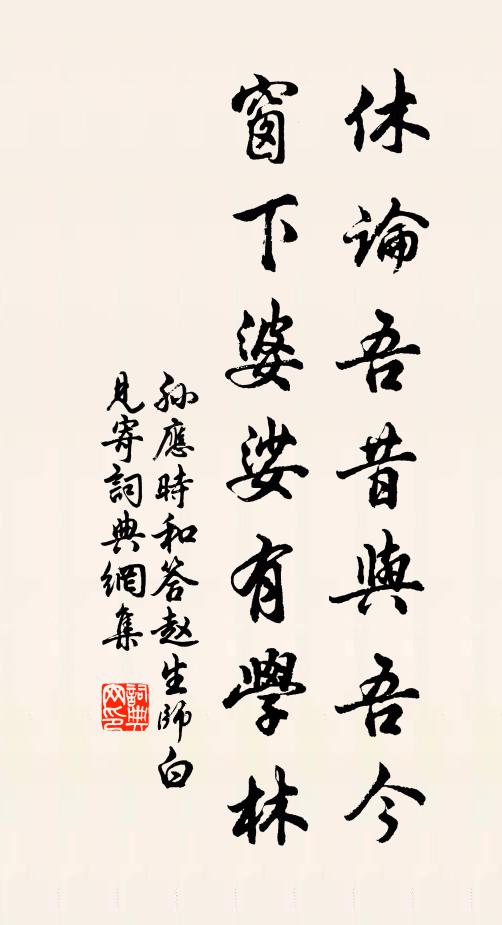 休論吾昔與吾今
窗下婆娑有學林
孫應時和答赵生師白
見寄詞典網集
詞典网印